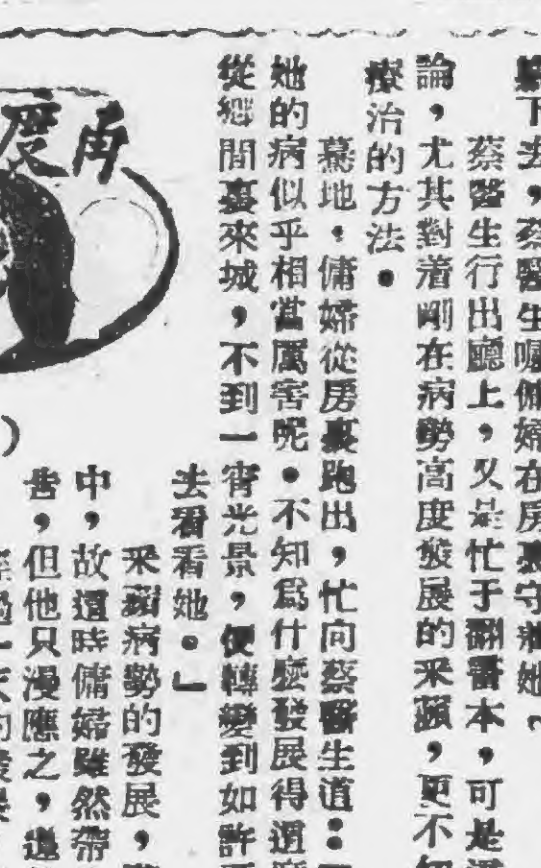 下去，蔡醫生囑傭婦在房裏守着她，
蔡醫生行出廳上，又是忙于翻書本，可是
論，尤其對着剛在病勢高度發展的釆蘋，更不
療治的方法。
驀地，傭婦從房裏跑出，忙向蔡醫生道：
她的病似乎相當厲害呢。不知爲什麽發展得這
從鄉間裏來城，不到一宵光景，便轉變到如許
去看看她。」
釆蘋病勢的發展，
中，故這時傭婦雖然帶
告，但他只漫應之，
一天的
再度
）